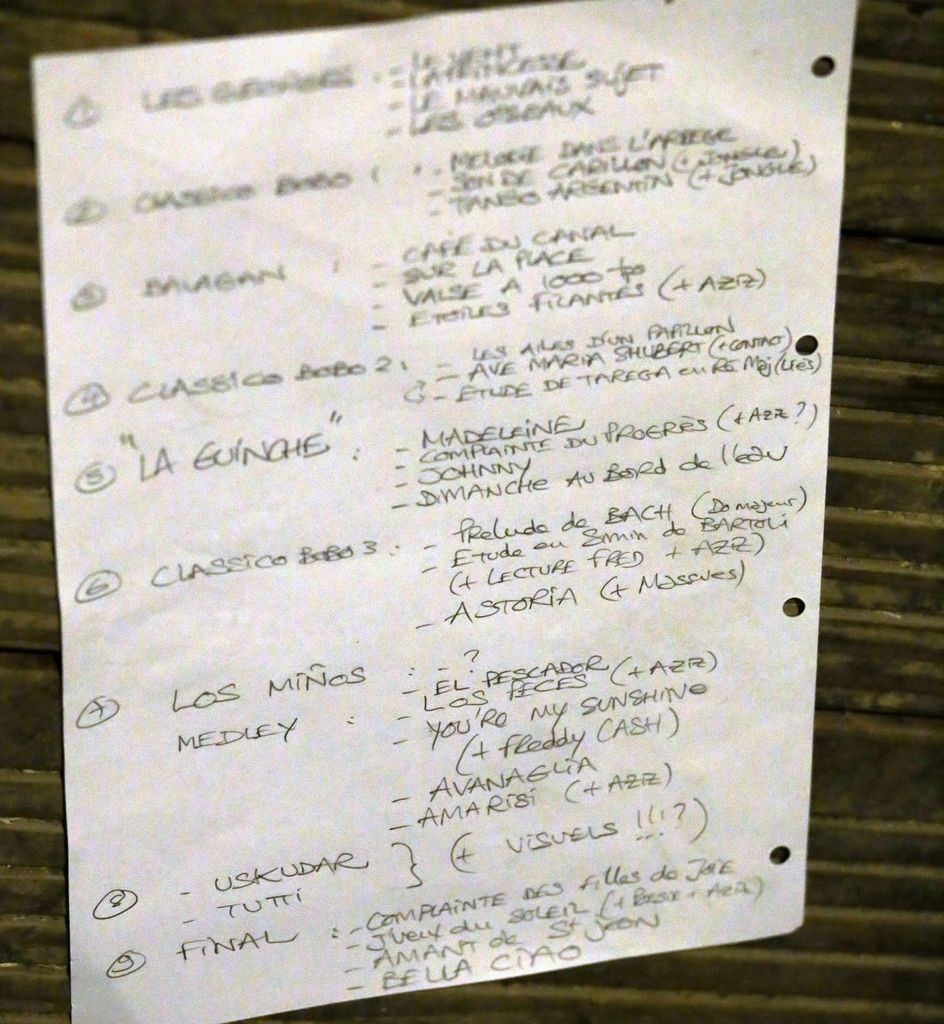 ① LES GEORGES : - LE VENT
- LA PRINCESSE
- LE MAUVAIS SUJET
- LES OISEAUX
② CLASSICO BOBO 1 : - MELODIE DANS L'ARIEGE
- SON DE CARILLON (+ JONGLE)
- TANGO ARGENTIN (+ JONGLE)
③ BALAGAN : - CAFE DU CANAL
- SUR LA PLACE
- VALSE A 1000 tps
- ETOILES FILANTES (+ AZIZ)
④ CLASSICO BOBO 2 : - LES AILES D'UN PAPILLON
- AVE MARIA SHUBERT (+ CONTACT)
- ETUDE DE TAREGA en Ré Maj
⑤ "LA GUINCHE" : - MADELEINE
- COMPLAINTE DU PROGRÈS (+ AZIZ ?)
- JOHNNY
- DIMANCHE AU BORD de l'eau
⑥ CLASSICO BOBO 3 : - Prelude de BACH (Do majeur)
- Etude en Simin de BARTOLI
(+ LECTURE FRED + AZIZ)
- ASTORIA (+ Massues)
⑦ LOS MIÑOS : - ?
- EL PESCADOR (+ AZIZ)
MEDLEY : - LOS PECES
- YOU'RE MY SUNSHINE
(+ freddy CASH)
- AVANAGLIA
- AMARISI (+ AZIZ)
⑧ - USKUDAR } (+ VISUELS !!!?)
- TUTTI
⑨ FINAL : - COMPLAINTE DES filles de JOIE
- Jueux du SOLEIL (+ Poesie + Aziz)
- AMANT de St Jean
- BELLA CIAO